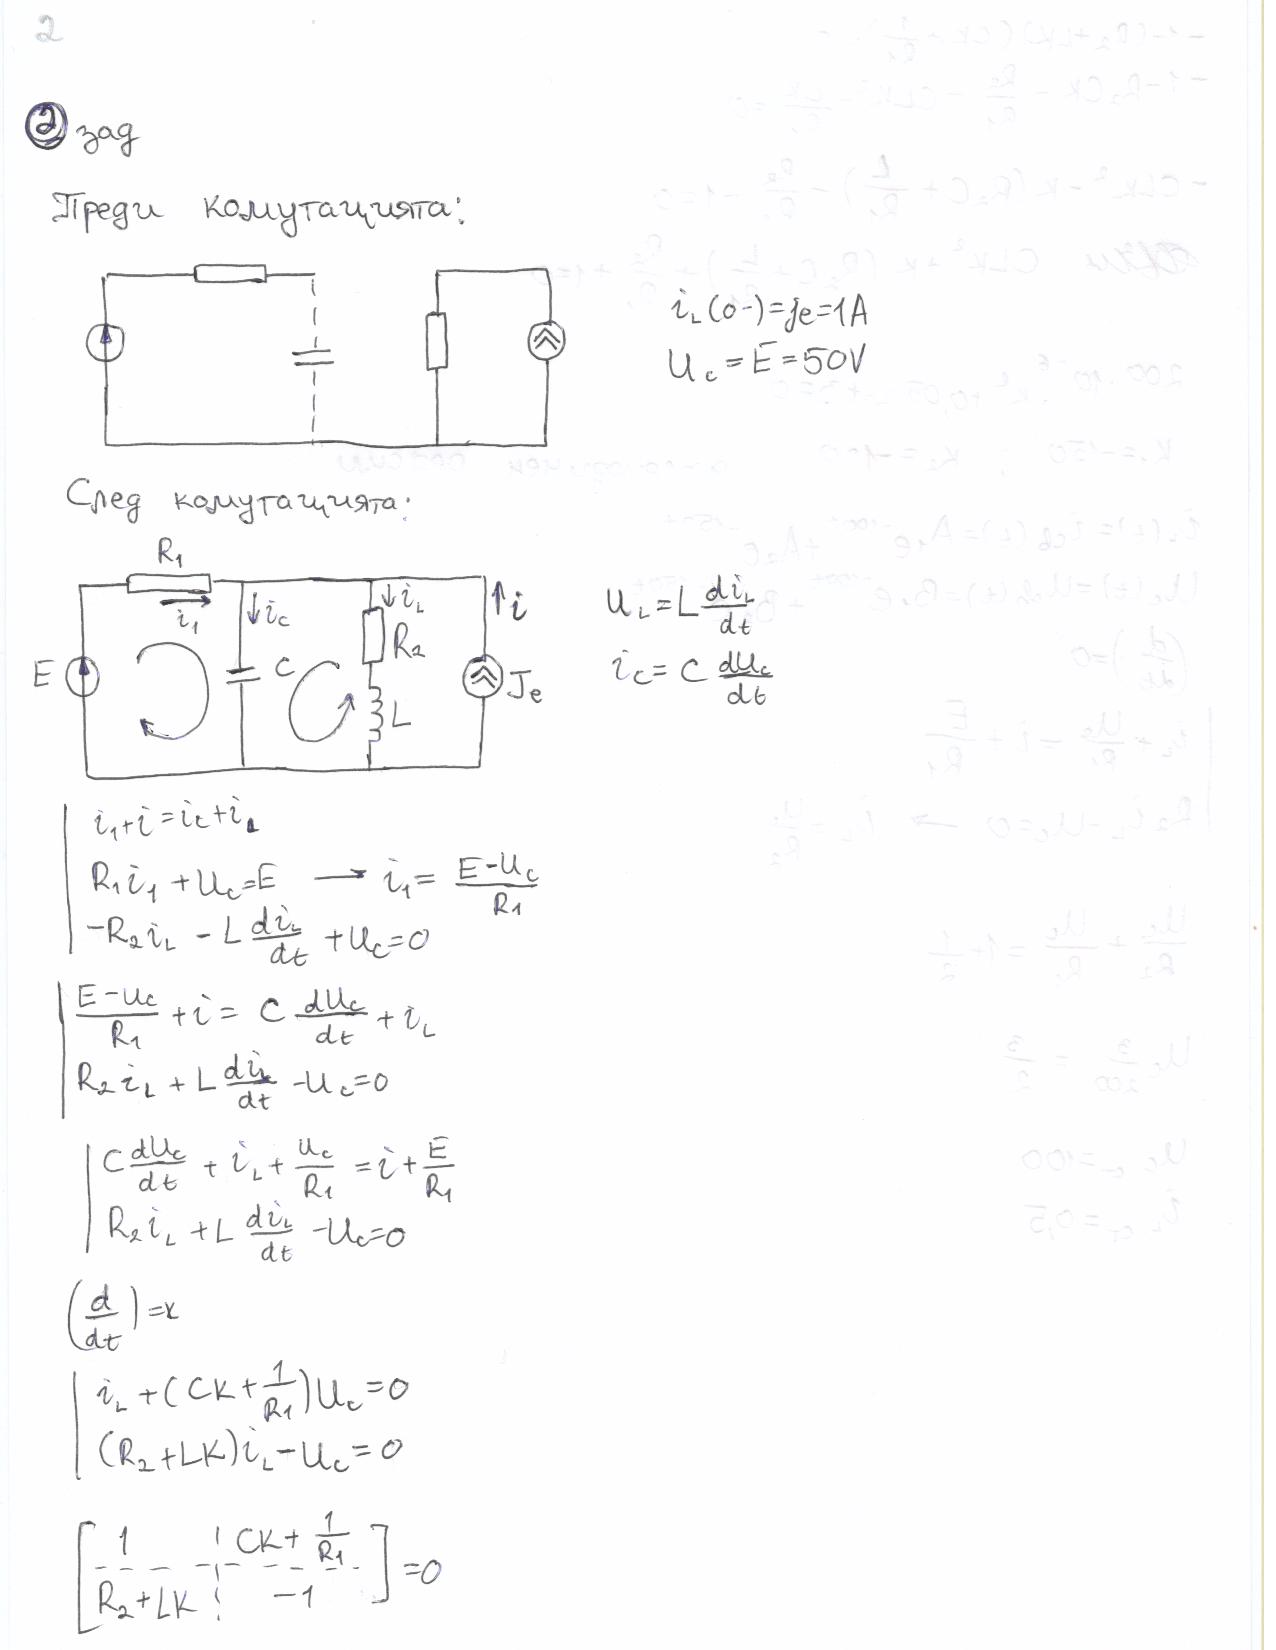 2
② зад
Преди комутацията:
i_L(0-)=Je=1A
U_c=E=50V
След комутацията:
R_1
i_1
i_c
i_L
i
E
C
R_2
L
J_e
U_L=L di_L/dt
i_c=C dU_c/dt
i_1+i=i_c+i_L
R_1i_1+U_c=E → i_1=(E-U_c)/R_1
-R_2i_L-L di_L/dt+U_c=0
(E-U_c)/R_1+i=C dU_c/dt+i_L
R_2i_L+L di_L/dt-U_c=0
C dU_c/dt+i_L+U_c/R_1=i+E/R_1
R_2i_L+L di_L/dt-U_c=0
(d/dt)=K
i_L+(CK+1/R_1)U_c=0
(R_2+LK)i_L-U_c=0
[1 ¦ CK+1/R_1
R_2+LK ¦ -1]=0